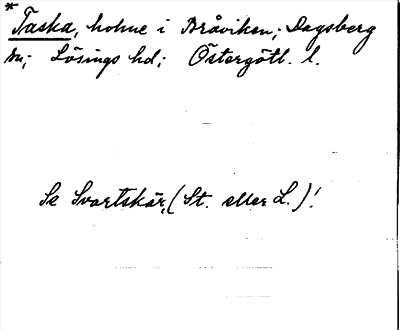 * Taska, holme i Bråviken; Dagsberg
sn; Lösings hd; Östergötl. l.
Se Svartskär, (St. eller L.)!